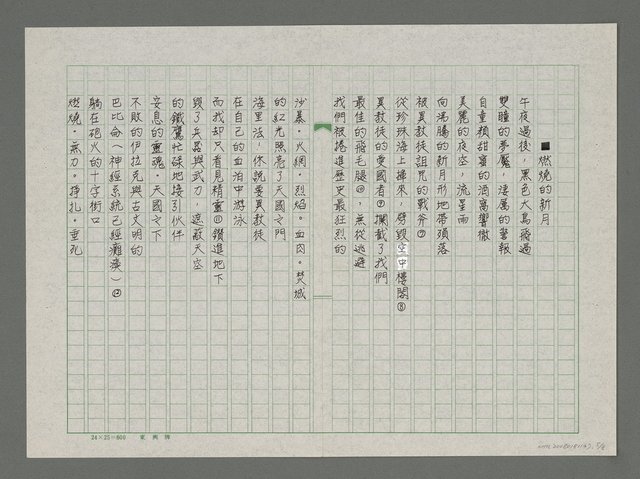 ■燃燒的新月
午夜過後，黑色大鳥飛過
雙瞳的夢魘，淒厲的警報
自童稚甜蜜的酒窩響徹
美麗的夜空，流星雨
向沸騰的新月形地帶頃落
被異教徒詛咒的戰斧⑦
從珍珠海上擲來，劈毀空中樓閣⑧
異教徒的愛國者⑨攔截了我們
最佳的飛毛腿⑩，無從逃避
我們被捲進歷史最狂烈的
沙暴。火網。烈焰。血肉。焚城
的紅光照亮了天國之門
海里法，你說要異教徒
在自己的血泊中游泳
而我卻只看見精靈⑪鑽進地下
毀了兵器與武力，遮蔽天空
的鐵鷹忙碌地接引伙伴
安息的靈魂。天國之下
不敗的伊拉克與古文明的
巴比侖（神經系統已經癱瘓）⑫
躺在砲火的十字街口
燃燒。無力。掙扎。垂死
24×25=600 東興牌